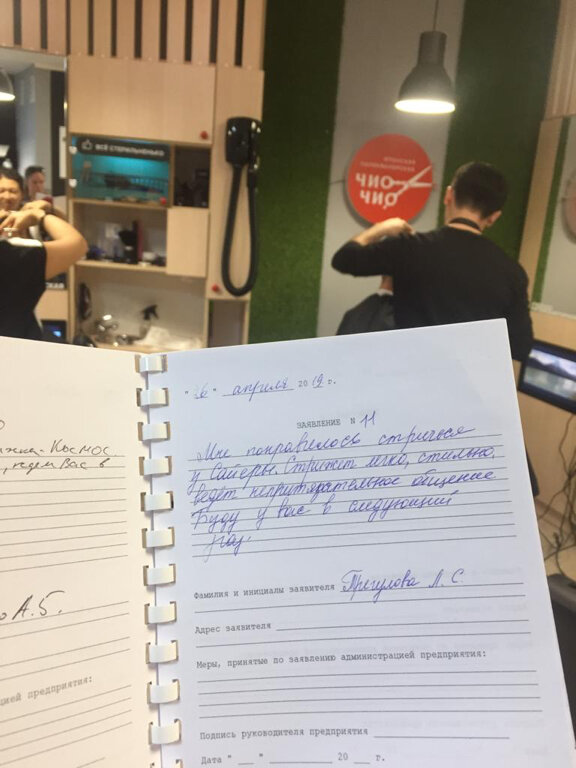 ВСЁ СТЕРИЛЬНЕНЬКО
ЯПОНСКАЯ
ПАРИКМАХЕРСКАЯ
ЧИО
ЧИО
Космос.
ждем Вас в
А.Б.
цией предприятия:
"26" апреля 2019 г.
ЗАЯВЛЕНИЕ N 11
Мне понравилось стричься
у Сайеры. Стрижет легко, стильно,
ведет непритязательное общение
Буду у вас в следующий
раз.
Фамилия и инициалы заявителя Трегулова Л. С.
Адрес заявителя
Меры, принятые по заявлению администрацией предприятия:
Подпись руководителя предприятия
Дата " " 20 г.